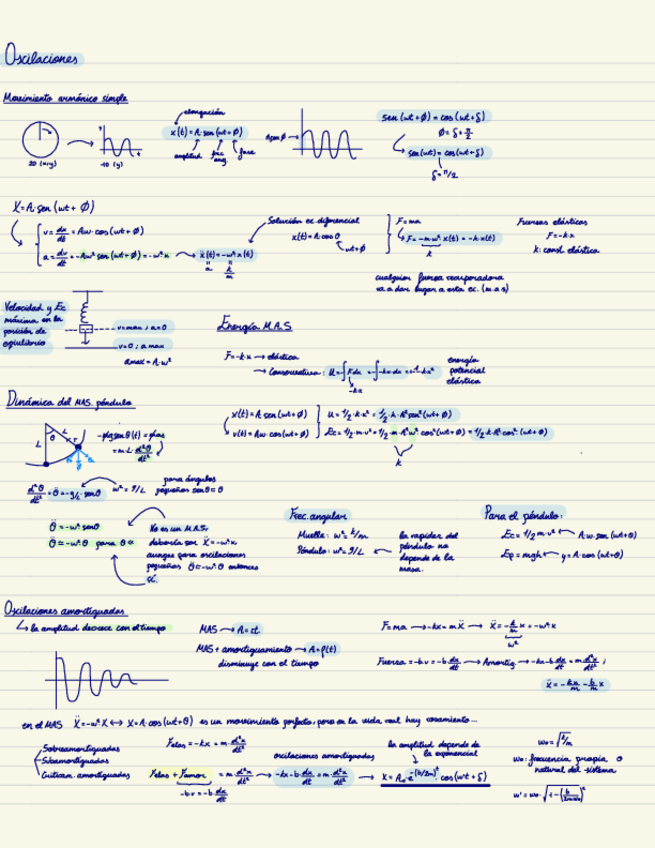 Oscilaciones
Movimiento armónico simple
elongación
x(t)=A·sen(wt+Ø)
amplitud frec. ang. fase
A senØ
sen(wt+Ø)=cos(wt+δ)
Ø=δ+π/2
sen(wt)=cos(wt+δ)
δ=π/2
2D (x+y)
1D (y)
X=A·sen(wt+Ø)
v=dx/dt=Aw·cos(wt+Ø)
a=dv/dt=-Aw²sen(wt+Ø)=-w²x
ẍ(t)=-w²x(t)
a
k/m
Solución ec diferencial
x(t)=A·cosθ
wt+Ø
F=ma
F=-m·w²·x(t)=-k·x(t)
k
Fuerzas elásticas
F=-k·x
k: const. elástica
cualquier fuerza recuperadora
va a dar lugar a esta ec. (m.a.s)
Velocidad y Ec
máxima en la
posición de
equilibrio
v=max ; a=0
v=0 ; a max
amax=A·w²
Energía M.A.S
F=-k·x → elástica
→ Conservativa: U=-∫Fdx=∫-kxdx=1/2·kx²
-kx
energía
potencial
elástica
Dinámica del MAS. péndulo
L
θ
-mgsenθ(t)=mat
=m·L·d²θ/dt²
x(t)=A·sen(wt+Ø)
v(t)=Aw·cos(wt+Ø)
U=1/2·k·x²=1/2·k·A²sen²(wt+Ø)
Ec=1/2·m·v²=1/2·m·A²w²cos²(wt+Ø)=1/2·k·A²·cos²(wt+Ø)
k
d²θ/dt²=θ̈=-g/L·senθ
w²=g/L
para ángulos
pequeños senθ≈θ
θ̈=-w²senθ
θ̈=-w²·θ para θ<<
No es un MAS:
debería ser ẍ=-w²x
aunque para oscilaciones
pequeñas θ̈=-w²·θ entonces
sí.
Frec. angular
Muelle: w²=k/m
Péndulo: w²=g/L
la rapidez del
péndulo no
depende de la
masa.
Para el péndulo:
Ec=1/2m·v² ← A·w·sen(wt+Ø)
Ep=mgh ← y=A·cos(wt+Ø)
Oscilaciones amortiguadas
→ la amplitud decrece con el tiempo
MAS → A=ct
MAS+amortiguamiento → A=f(t)
disminuye con el tiempo
F=ma → -kx=mẍ → ẍ=-k/m·x=-w²x
w²
Fuerza=-b·v=-b·dx/dt → Amortig → -kx-b·dx/dt=m·d²x/dt² ;
en el MAS ẍ=-w²x ↔ X=A·cos(wt+Ø) es un movimiento perfecto, pero en la vida real hay rozamiento...
Sobreamortiguadas
Subamortiguadas
Críticam. amortiguadas
Felas=-kx=m·d²x/dt²
Felas+Famor=m·d²x/dt²
-b·v=-b·dx/dt
oscilaciones amortiguadas
-kx-b·dx/dt=m·d²x/dt²
la amplitud depende de
la exponencial
X=A₀·e^-(b/2m)t·cos(wt+δ)
w₀=√k/m
w₀: frecuencia propia o
natural del sistema